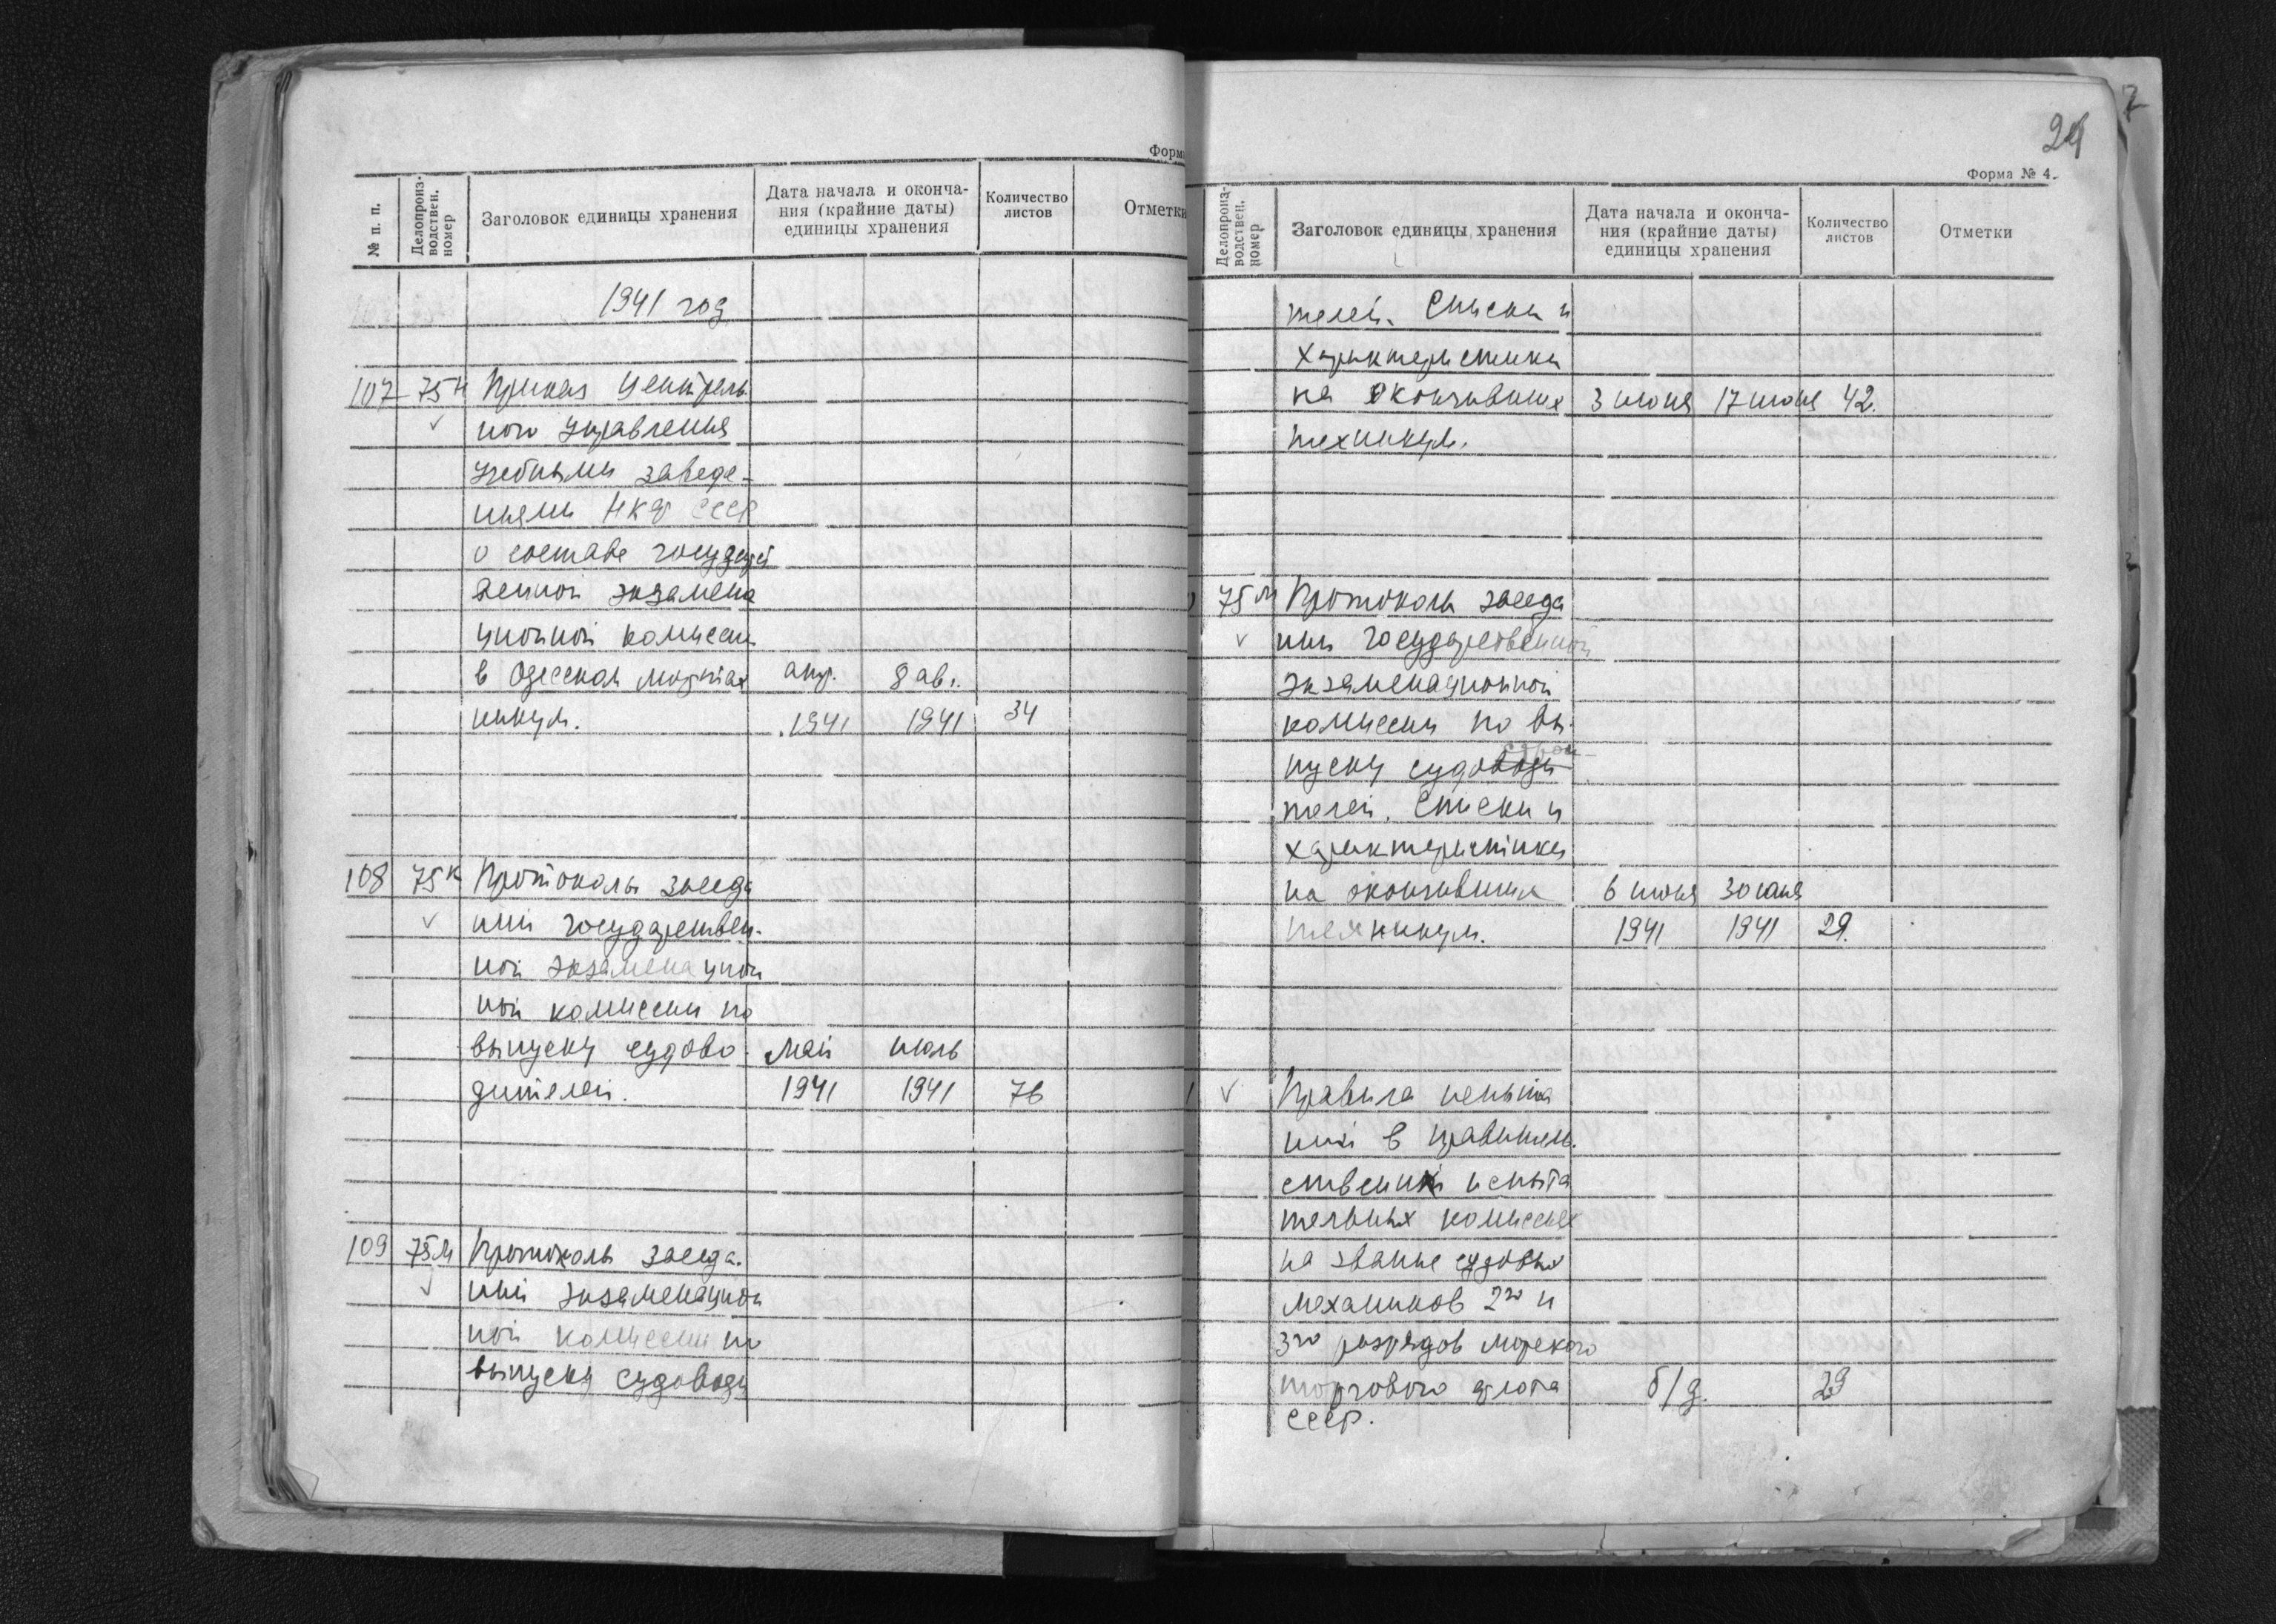 Форма
№ п. п.
Делопроиз-
водствен.
номер
Заголовок единицы хранения
Дата начала и оконча-
ния (крайние даты)
единицы хранения
Количество
листов
Отметки
1941 год
107 75н Приказ Централь-
ного Управления
учебными заведе-
ниями НКФ СССР
о составе государст
венной экзамена
ционной комиссии
в Одесском мортех апр. 8 ав.
никум. 1941 1941 34
108 75к Протоколы заседа
ний государствен-
ной экзаменацион
ной комиссии по
выпуску судово- май июль
дителей. 1941 1941 76
109 75л Протоколы заседа-
ний экзаменацион
ной комиссии по
выпуску судоводи
Форма № 4.
Делопроиз-
водствен.
номер
Заголовок единицы хранения
Дата начала и оконча-
ния (крайние даты)
единицы хранения
Количество
листов
Отметки
телей. Списки и
характеристики
на окончивших 3 июня 17 июня 42.
техникум.
75м Протоколы заседа
ний государственной
экзаменационной
комиссии по вы-
строи
пуску судоводи
телей. Списки и
характеристики
на окончивших 6 июня 30 июня
техникум. 1941 1941 29.
Правила испыта
ний в правитель-
ственных испыта
тельных комиссиях
на звание судовых
механиков 2го и
3го разрядов морского
торгового флота б/д. 29
СССР.